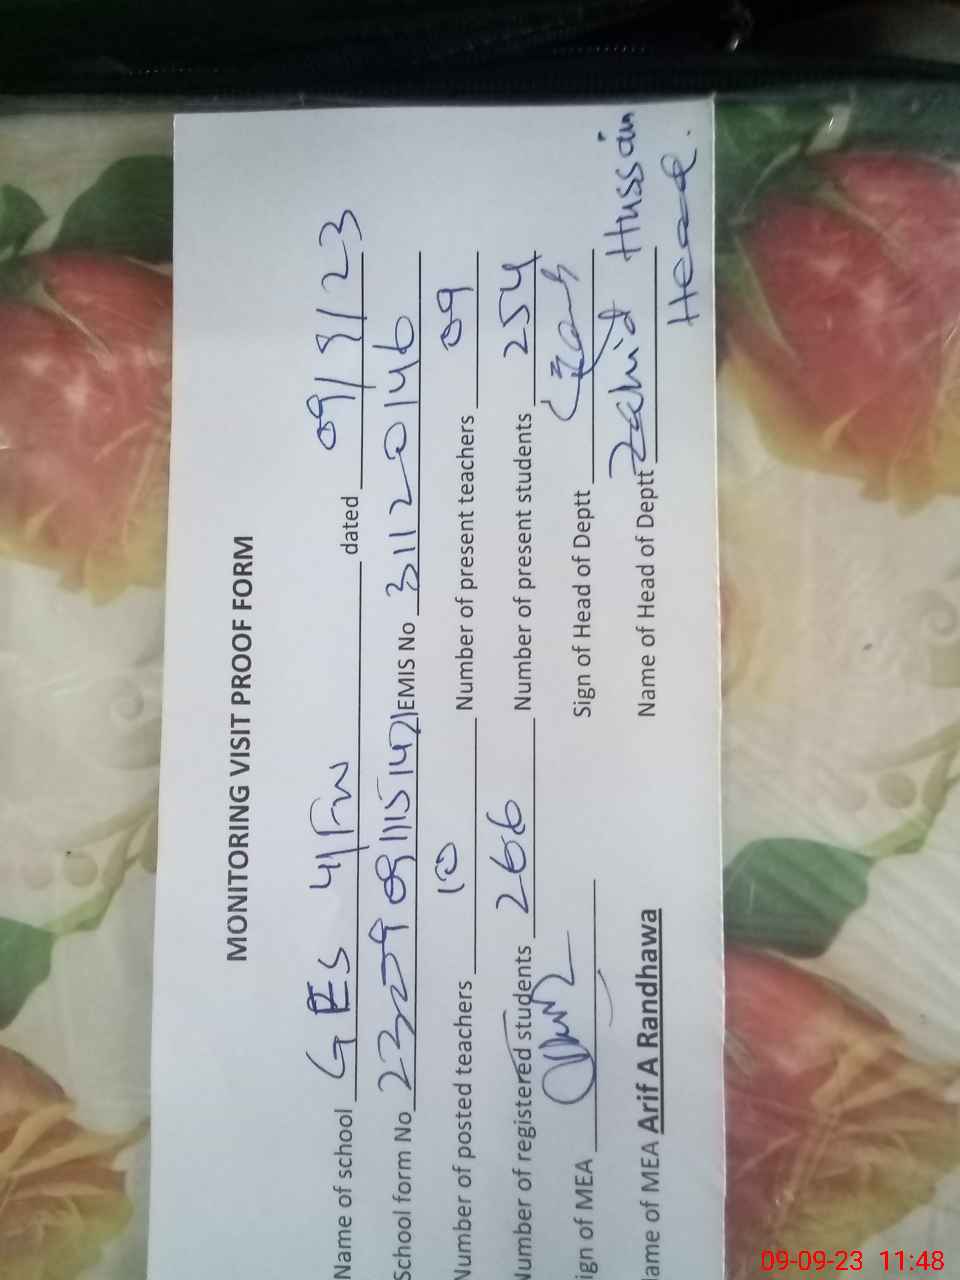 MONITORING VISIT PROOF FORM
Name of school GES 41/FW dated 09/9/23
School form No EMIS No 31120146
Number of posted teachers 10 Number of present teachers 09
Number of registered students 266 Number of present students 254
ign of MEA Sign of Head of Deptt
ame of MEA Arif A Randhawa Name of Head of Deptt Zahid Hussain
Head.
09-09-23 11:48